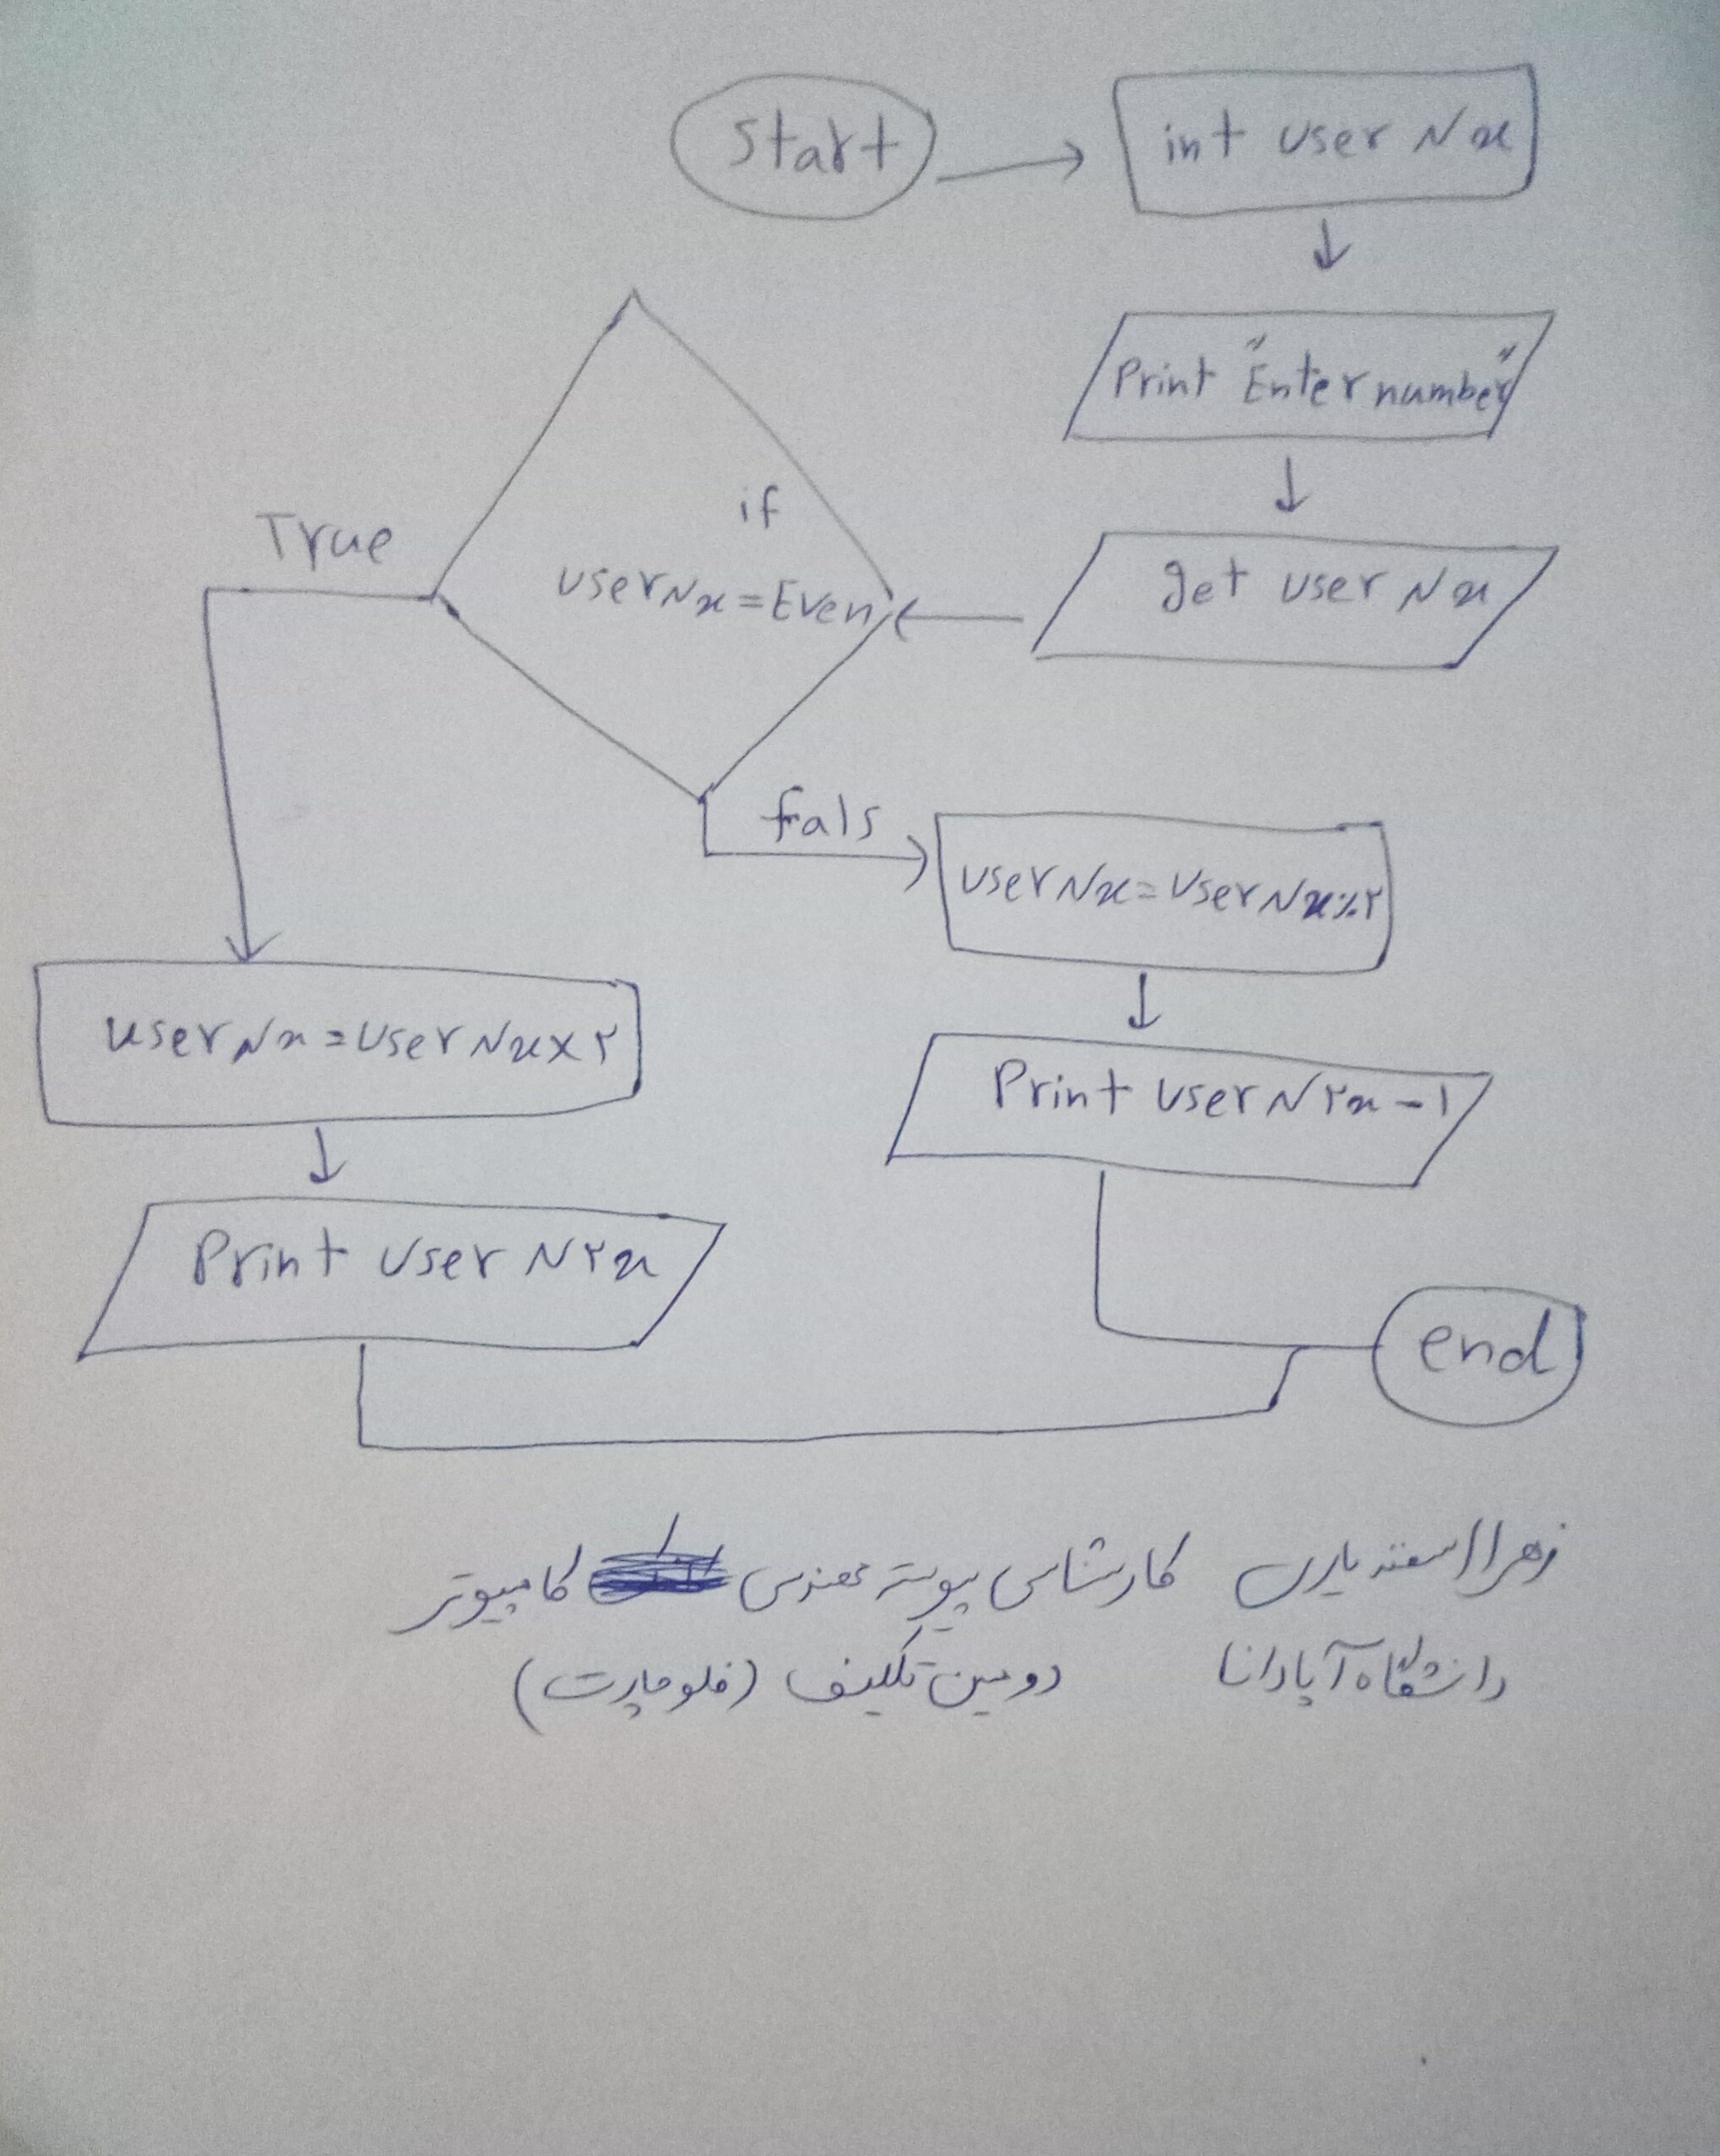 start
int user Nx
Print "Enter number"
get user Nx
if
userNx = Even
True
fals
user Nx = User Nx٪۲
Print user N۲x - ۱
user Nx = User Nx × ۲
Print User N۲x
end
زهرا اسفندیاری کارشناسی پیوسته مهندسی کامپیوتر
دانشگاه آپادانا دومین تکلیف (فلوچارت)